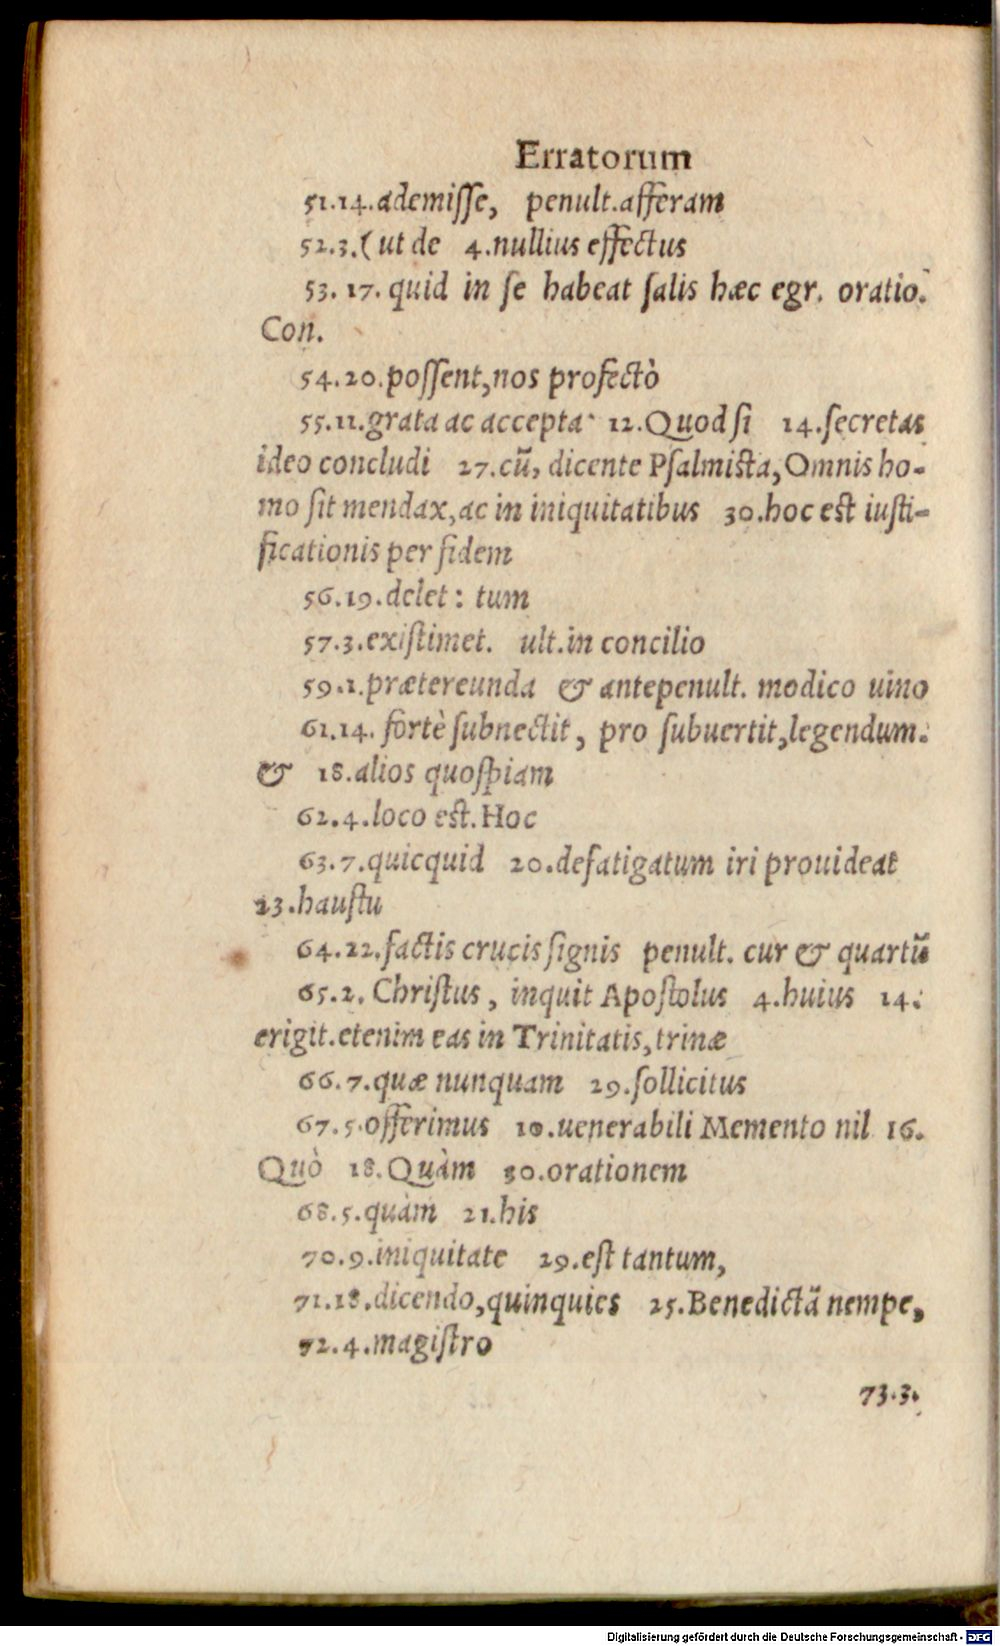 Erratorum
51.14.ademiſſe, penult.afferam
52.3.(ut de 4.nullius effectus
53. 17. quid in ſe habeat ſalis hæc egr. oratio.
Con.
54.20.poſſent,nos profectò
55.11.grata ac accepta 12.Quod ſi 14.ſecretas
ideo concludi 27.cū, dicente Pſalmiſta,Omnis ho-
mo ſit mendax,ac in iniquitatibus 30.hoc eſt iuſti-
ficationis per fidem
56.19.delet: tum
57.3.exiſtimet. ult.in concilio
59.1.prætereunda & antepenult. modico uino
61.14. fortè ſubnectit, pro ſubuertit,legendum.
& 18.alios quoſpiam
62.4.loco eſt.Hoc
63.7.quicquid 20.defatigatum iri prouideat
23.hauſtu
64.22.factis crucis ſignis penult. cur & quartū
65.2. Chriſtus, inquit Apoſtolus 4.huius 14.
erigit.etenim eas in Trinitatis,trinæ
66.7.quæ nunquam 29.ſollicitus
67.5.offerimus 10.uenerabili Memento nil 16.
Quò 18.Quàm 30.orationem
68.5.quàm 21.his
70.9.iniquitate 29.eſt tantum,
71.18.dicendo,quinquies 25.Benedictā nempe,
72.4.magiſtro
73.3.
Digitalisierung gefördert durch die Deutsche Forschungsgemeinschaft - DFG